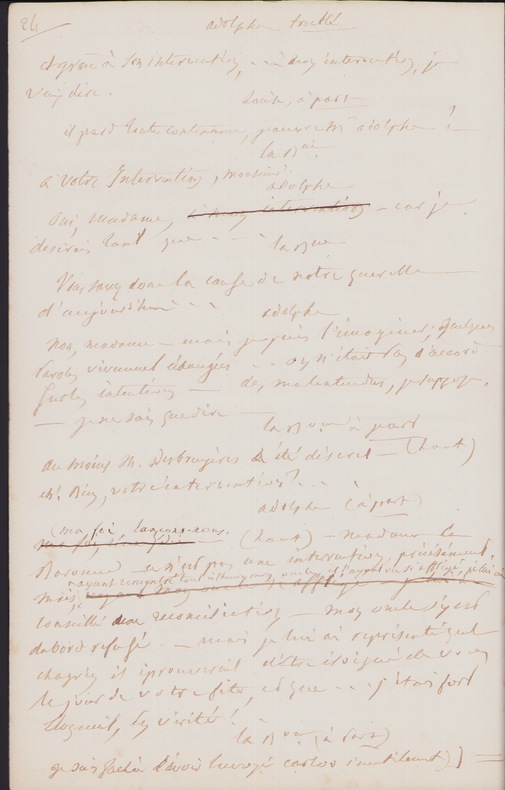 24
adolphe troublé
et grâce à son intervention, - - à mon intervention, je
veux dire.
Louise, à part
il perd toute contenance, pauvre Mr adolphe !
la Bne
à votre Intervention, monsieur
adolphe
Oui, madame, à mon intervention - car je
désirais tant que - - -
la Bne
Vous savez donc la cause de notre querelle
d'aujourd'hui - - -
adolphe
Non, madame - mais je puis l'imaginer. Quelques
paroles vivement échangées - - on n'était pas d'accord
sur les intentions - des malentendus, je suppose.
- je ne sais que dire -
la Bonne à part
du moins M. Desbruyères a été discret - (haut)
eh! bien, votre intervention? - -
adolphe (à part)
(ma foi, lançons nous.
(haut) - madame la
Baronne - ce n'est pas une intervention, précisément.
mais, ayant rencontré tout à l'heure mon oncle
conseillé une réconciliation - mon oncle s'y est
d'abord refusé - mais je lui ai représenté quel
chagrin il éprouverait d'être éloigné de vous
le jour de votre fête, et que - - - j'étais fort
éloquent, en vérité!
la Bonne (à part)
je suis fâchée d'avoir renvoyé carlos inutilement)